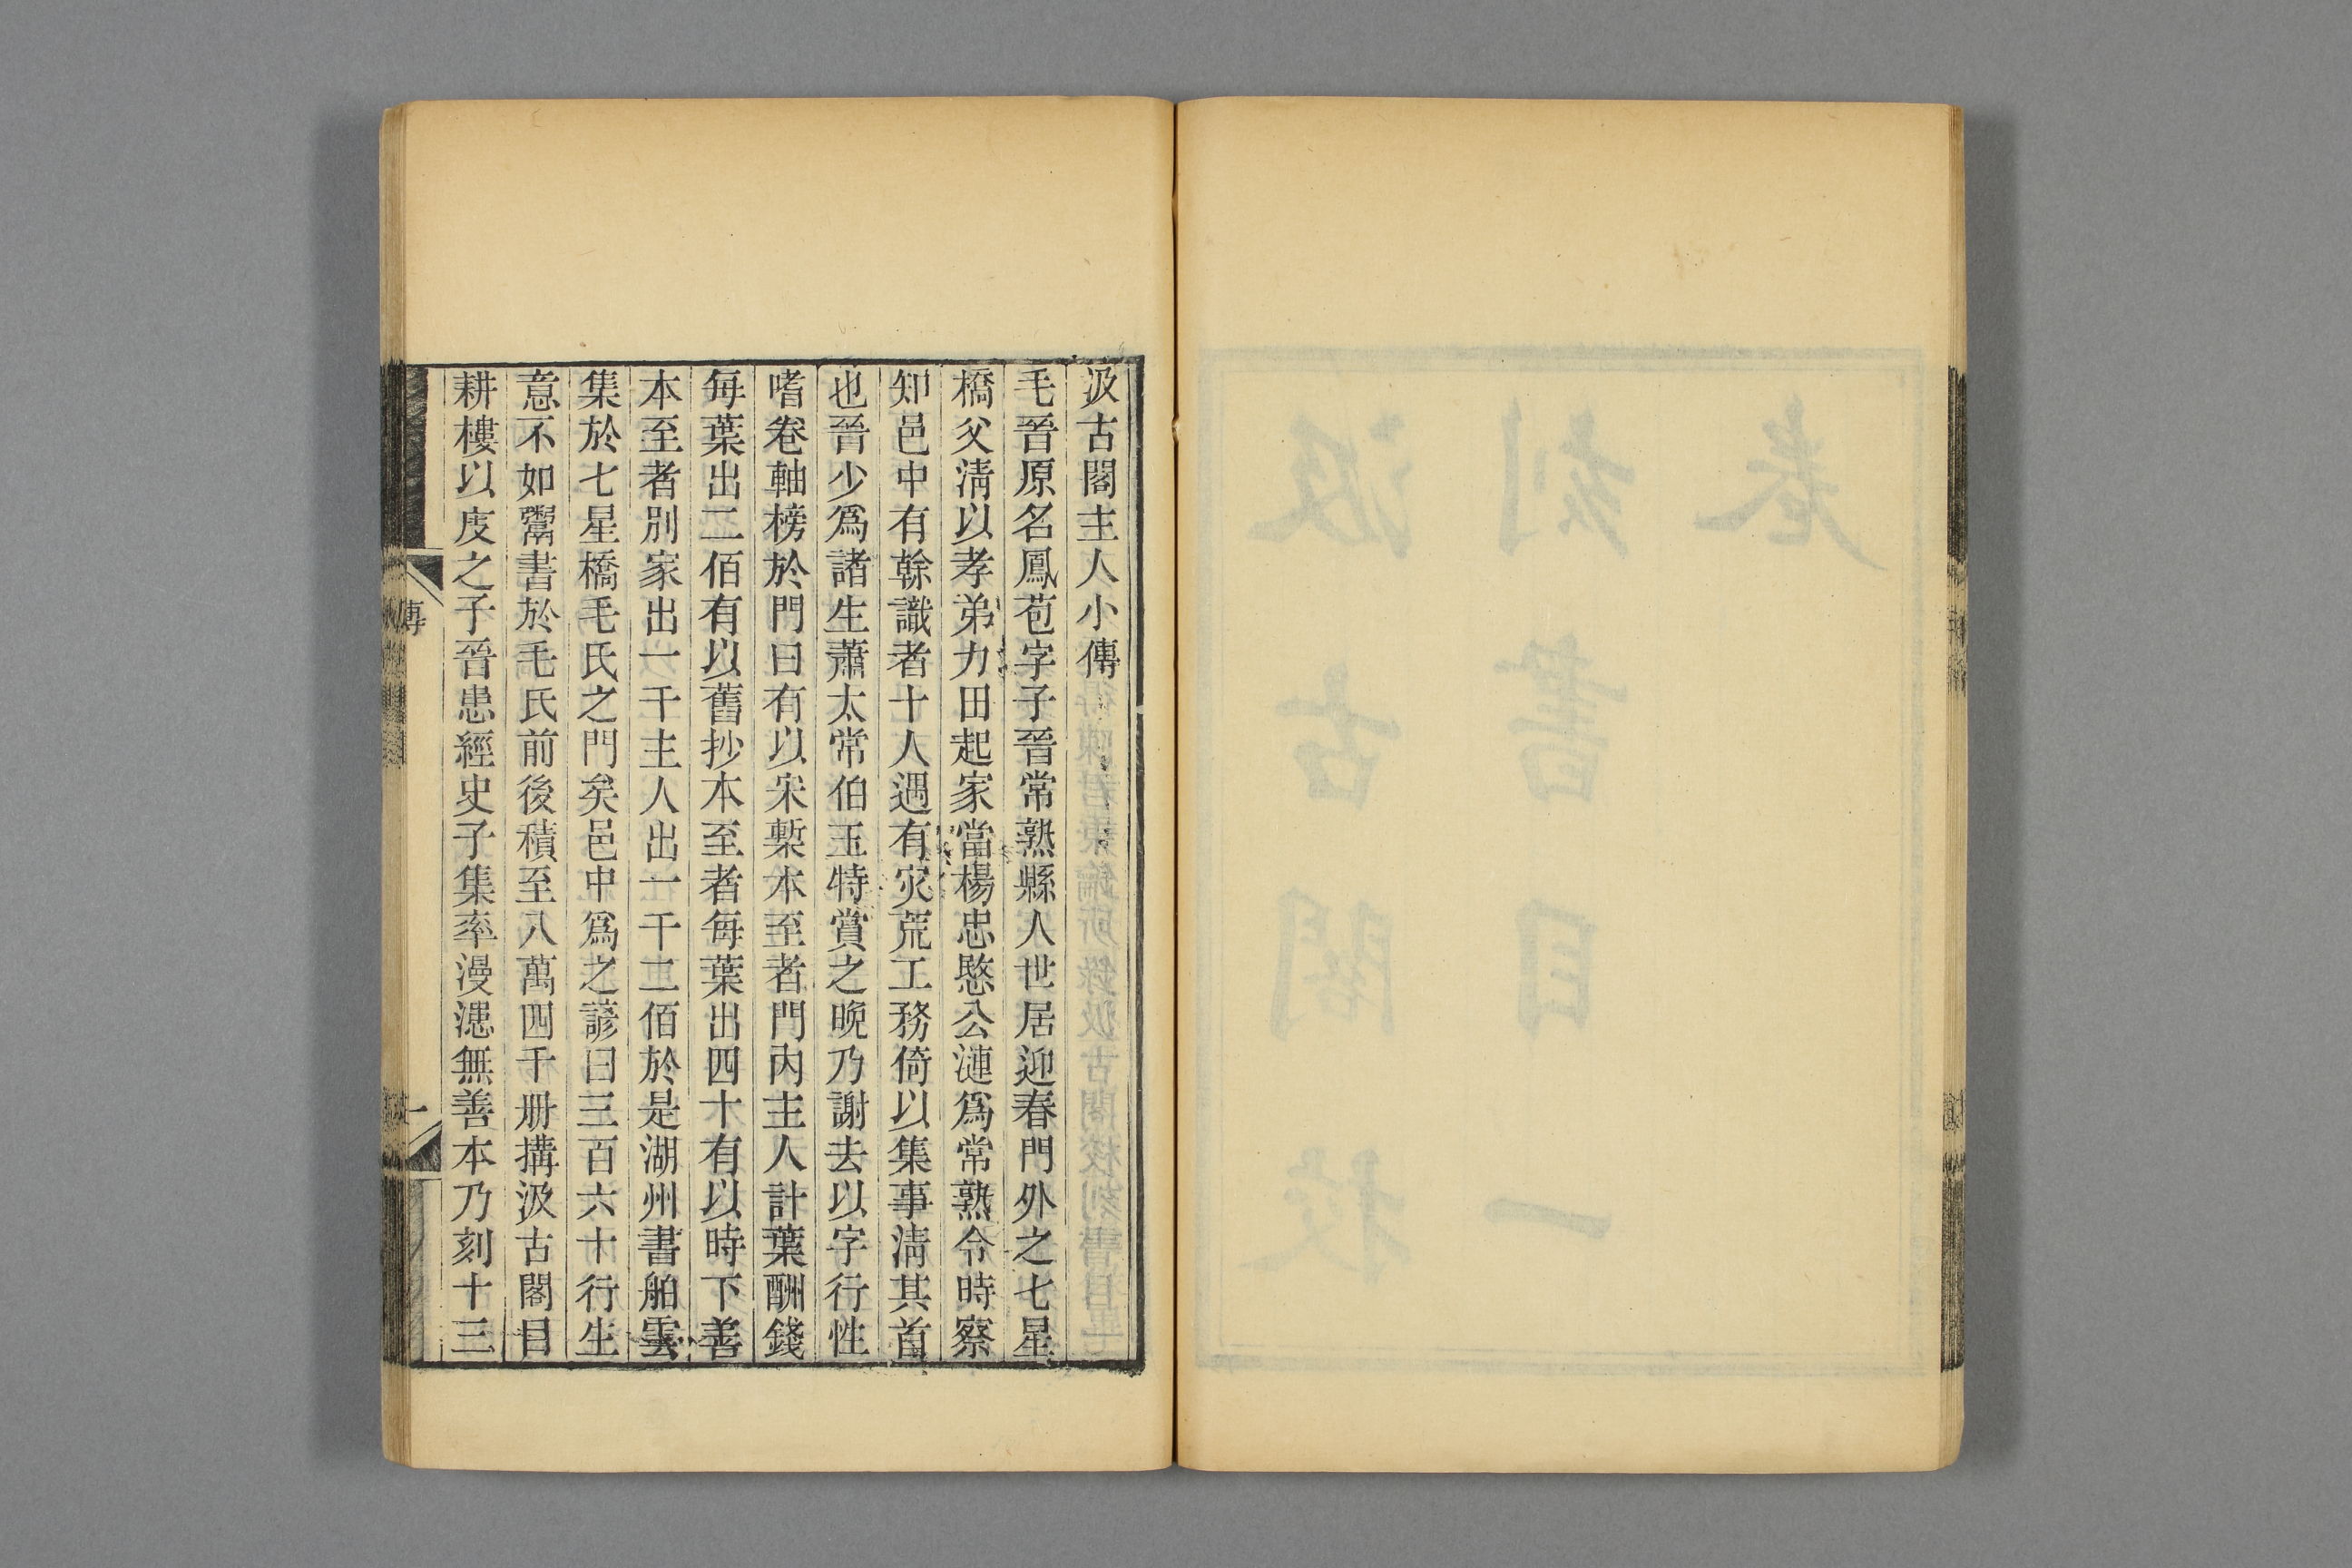 汲古閣主人小傳
毛晉原名鳳苞字子晉常熟縣人世居迎春門外之七星
橋父淸以孝弟力田起家當楊忠愍公漣爲常熟令時察
知邑中有榦識者十人遇有灾荒工務倚以集事淸其首
也晉少爲諸生蕭太常伯玉特賞之晚乃謝去以字行性
嗜卷軸榜於門曰有以宋槧本至者門內主人計葉酬錢
每葉出二佰有以舊抄本至者每葉出四十有以時下善
本至者別家出一千主人出一千二佰於是湖州書舶雲
集於七星橋毛氏之門矣邑中爲之諺曰三百六十行生
意不如鬻書於毛氏前後積至八萬四千册搆汲古閣目
耕樓以庋之子晉患經史子集率漫漶無善本乃刻十三
傳
一
汲古閣校
刻書目一
卷